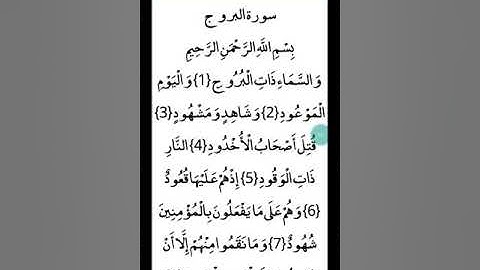 سورة البروج
بِسْمِ اللَّهِ الرَّحْمَنِ الرَّحِيمِ
وَالسَّمَاءِ ذَاتِ الْبُرُوجِ {1} وَالْيَوْمِ
الْمَوْعُودِ {2} وَشَاهِدٍ وَمَشْهُودٍ {3}
قُتِلَ أَصْحَابُ الْأُخْدُودِ {4} النَّارِ
ذَاتِ الْوَقُودِ {5} إِذْ هُمْ عَلَيْهَا قُعُودٌ
{6} وَهُمْ عَلَى مَا يَفْعَلُونَ بِالْمُؤْمِنِينَ
شُهُودٌ {7} وَمَا نَقَمُوا مِنْهُمْ إِلَّا أَنْ